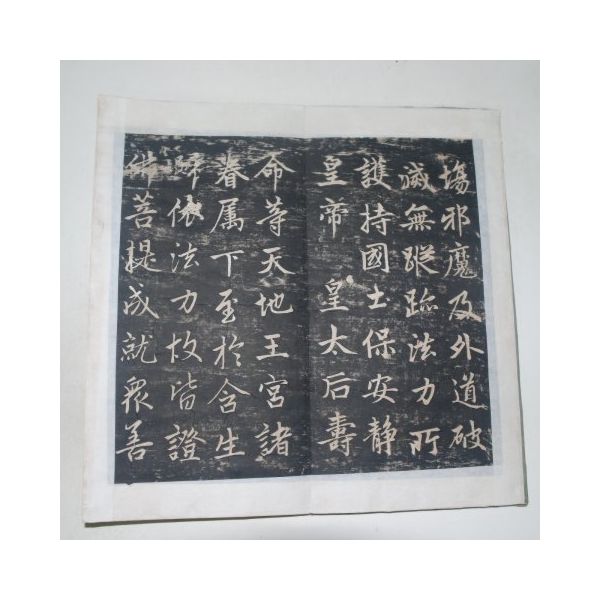 場邪魔及外道破
滅無蹤跡法力所
護持國土保安静
皇帝 皇太后壽
命等天地王宫諸
眷属下至於含生
歸依法力故皆證
佛菩提成就衆善